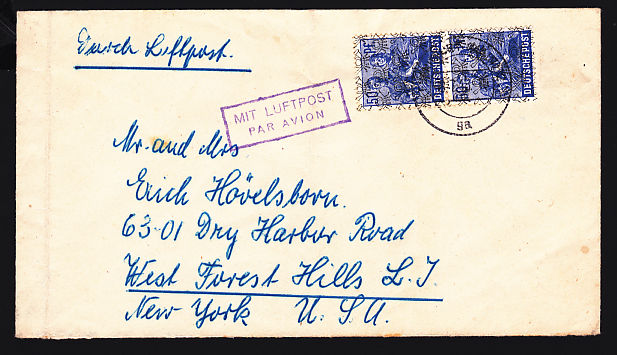 Durch Luftpost.
MIT LUFTPOST
PAR AVION
50
DEUTSCHE POST
50
DEUTSCHE POST
ga
Mr. and Mrs
Erich Hövelsborn.
63-01 Dry Harbor Road
West Forest Hills L. I.
New York U. S. A.